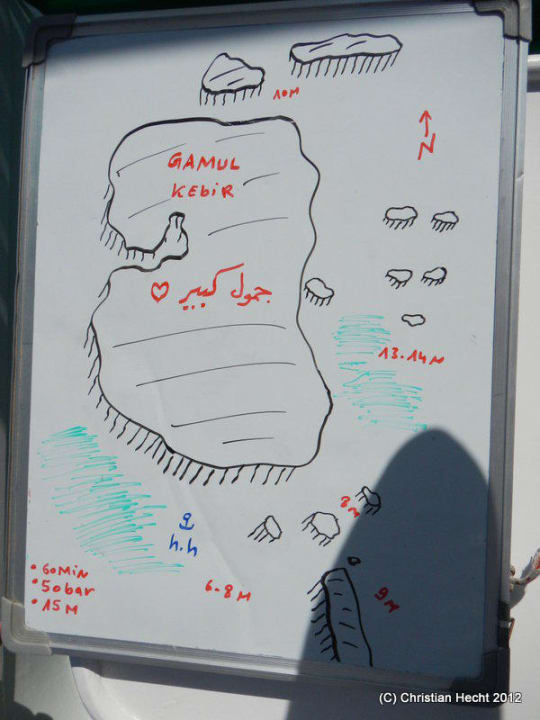 10M
N
GAMUL
KEBIR
♡ جمول كبير
13-14M
8M
h.h
6-8M
9M
• 60MiN
• 50bar
• 15M
(C) Christian Hecht 2012